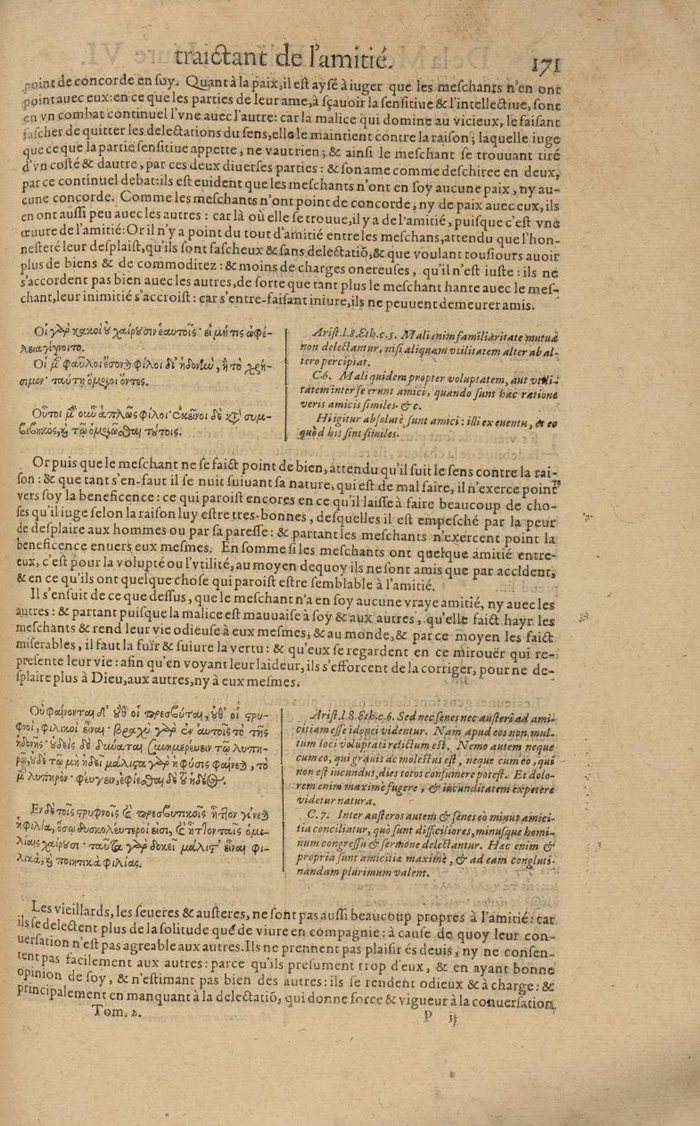 traictant de l'amitié. 171
point de concorde en soy. Quant à la paix, il est aysé à iuger que les meschants n'en ont
point auec eux: en ce que les parties de leur ame, à sçauoir la sensitiue & l'intellectiue, sont
en vn combat continuel l'vne auec l'autre: car la malice qui domine au vicieux, le faisant
fascher de quitter les delectations du sens, elle le maintient contre la raison; laquelle iuge
que ce que la partie sensitiue appette, ne vaut rien; & ainsi le meschant se trouuant tiré
d'vn costé & dautre, par ces deux diuerses parties: & son ame comme deschiree en deux,
par ce continuel debat: ils est euident que les meschants n'ont en soy aucune paix, ny au-
cune concorde. Comme les meschants n'ont point de concorde, ny de paix auec eux, ils
en ont aussi peu auec les autres: car là où elle se trouue, il y a de l'amitié, puisque c'est vne
œuure de l'amitié: Or il n'y a point du tout d'amitié entre les meschans, attendu que l'hon-
nesteté leur desplaist, qu'ils sont fascheux & sans delectatiõ, & que voulant tousiours auoir
plus de biens & de commoditez: & moins de charges onereuses, qu'il n'est iuste: ils ne
s'accordent pas bien auec les autres, de sorte que tant plus le meschant hante auec le mes-
chant, leur inimitié s'accroist: car s'entre-faisant iniure, ils ne peuuent demeurer amis.
Οἱ γὰρ κακοὶ οὐ χαίρουσιν ἑαυτοῖς· εἰ μή τις ὠφέ-
λεια γίγνοιτο.
Οἱ μὲν φαῦλοι ἔσονται φίλοι δι' ἡδονὴν, ἢ τὸ χρή-
σιμον· ταύτῃ ὅμοιοι ὄντες.
Οὗτοι μὲν οὖν ἁπλῶς φίλοι· ἐκεῖνοι δὲ κατὰ συμ-
βεβηκὸς, καὶ τῷ ὁμοιῶσθαι τούτοις.
Arist. l. 8. Eth. c. 5. Mali enim familiaritate mutuâ
non delectantur, nisi aliquam vtilitatem alter ab al-
tero percipiat.
C. 6. Mali quidem propter voluptatem, aut vtili-
tatem inter se erunt amici, quando sunt hac ratione
veris amicis similes. &c.
Hi igitur absolutè sunt amici: illi ex euentu, & eo
quòd his sint similes.
Or puis que le meschant ne se faict point de bien, attendu qu'il suit le sens contre la rai-
son: & que tant s'en-faut il se nuit suiuant sa nature, qui est de mal faire, il n'exerce point
vers soy la beneficence: ce qui paroist encores en ce qu'il laisse à faire beaucoup de cho-
ses qu'il iuge selon la raison luy estre tres-bonnes, desquelles il est empesché par la peur
de desplaire aux hommes ou par sa paresse: & partant les meschants n'exercent point la
beneficence enuers eux mesmes. En somme si les meschants ont quelque amitié entre-
eux, c'est pour la volupté ou l'vtilité, au moyen dequoy ils ne sont amis que par accident,
& en ce qu'ils ont quelque chose qui paroist estre semblable à l'amitié.
Il s'ensuit de ce que dessus, que le meschant n'a en soy aucune vraye amitié, ny auec les
autres: & partant puisque la malice est mauuaise à soy & aux autres, qu'elle faict hayr les
meschants & rend leur vie odieuse à eux mesmes, & au monde, & par ce moyen les faict
miserables, il faut la fuïr & suiure la vertu: & qu'eux se regardent en ce mirouër qui re-
presente leur vie: afin qu'en voyant leur laideur, ils s'efforcent de la corriger, pour ne de-
splaire plus à Dieu, aux autres, ny à eux mesmes.
Οὐ φαίνονται δ' οὔθ' οἱ πρεσβῦται, οὔθ' οἱ στρυ-
φνοὶ, φιλικοὶ εἶναι· βραχὺ γὰρ ἐν αὐτοῖς τὸ τῆς
ἡδονῆς· οὐδεὶς δὲ δύναται συνημερεύειν τῷ λυπη-
ρῷ, οὐδὲ τῷ μὴ ἡδεῖ· μάλιστα γὰρ ἡ φύσις φαίνεται, τὸ
μὲν λυπηρὸν φεύγειν, ἐφίεσθαι δὲ τοῦ ἡδέος.
Ἐν δὲ τοῖς στρυφνοῖς καὶ πρεσβυτικοῖς ἧττον γίνεται
ἡ φιλία, ὅσῳ δυσκολώτεροί εἰσι, καὶ ἧττον ταῖς ὁμι-
λίαις χαίρουσι· ταῦτα γὰρ δοκεῖ μάλιστ' εἶναι φι-
λικὰ, καὶ ποιητικὰ φιλίας.
Arist. l. 8. Eth. c. 6. Sed nec senes nec austeri ad ami-
citiam esse idonei videntur. Nam apud eos non mul-
tum loci voluptati relictum est. Nemo autem neque
cum eo, qui grauis ac molestus est, neque cum eo, qui
non est iucundus, dies totos consumere potest. Et dolo-
rem enim maximè fugere, & iucunditatem expetere
videtur natura.
C. 7. Inter austeros autem & senes eò minus amici-
tia conciliatur, quò sunt difficiliores, minusque homi-
num congressu & sermone delectantur. Hæc enim &
propria sunt amicitiæ maximè, & ad eam congluti-
nandam plurimum valent.
Les vieillards, les seueres & austeres, ne sont pas aussi beaucoup propres à l'amitié: car
ils se delectent plus de la solitude que de viure en compagnie: à cause de quoy leur con-
uersation n'est pas agreable aux autres. Ils ne prennent pas plaisir és deuis, ny ne consen-
tent pas facilement aux autres: parce qu'ils presument trop d'eux, & en ayant bonne
opinion de soy, & n'estimant pas bien des autres: ils se rendent odieux & à charge: &
principalement en manquant à la delectatiõ, qui donne force & vigueur à la conuersation,
Tom. 2. P ij